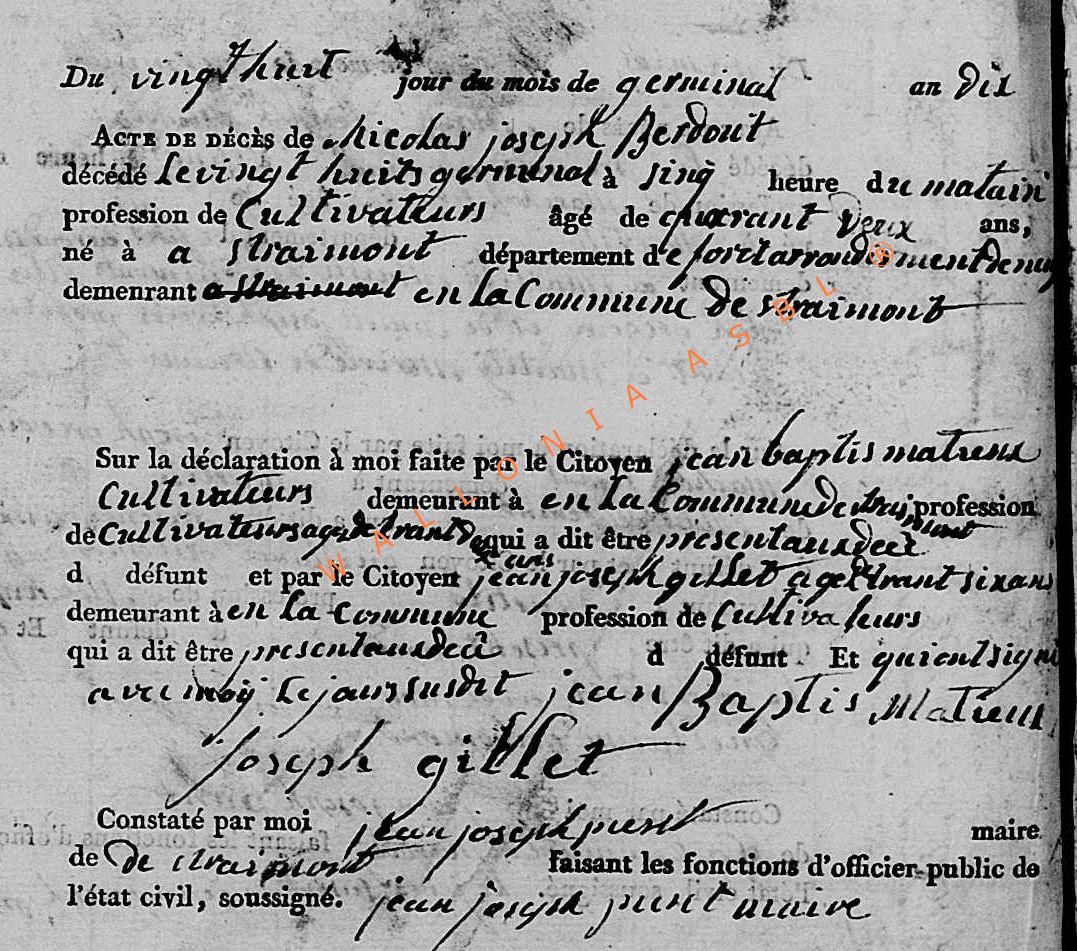 Du vingt huit jour du mois de germinal an dix
ACTE DE DÉCÈS de Nicolas joseph Berdout
décédé le vingt huits germinal à sinq heure du matain
profession de Cultivateurs âgé de quarant deux ans,
né à a straimont département de foret arrondisment de
demeurant a straimont en la Commune De straimont
Sur la déclaration à moi faite par le Citoyen jean baptis
Cultivateurs demeurant à en la Commune de straimont profession
de Cultivateurs qui a dit être present au deci
ans
d défunt et par le Citoyen jean joseph gillet age six ans
demeurant à en la Commune profession de Cultivateurs
qui a dit être present au deci d défunt Et qui ont signé
avec moy le jour susdit jean Baptis
joseph gillet
Constaté par moi jean joseph maire
de De straimont faisant les fonctions d'officier public de
l'état civil, soussigné. jean joseph maire
WALLONIA ASBL ®